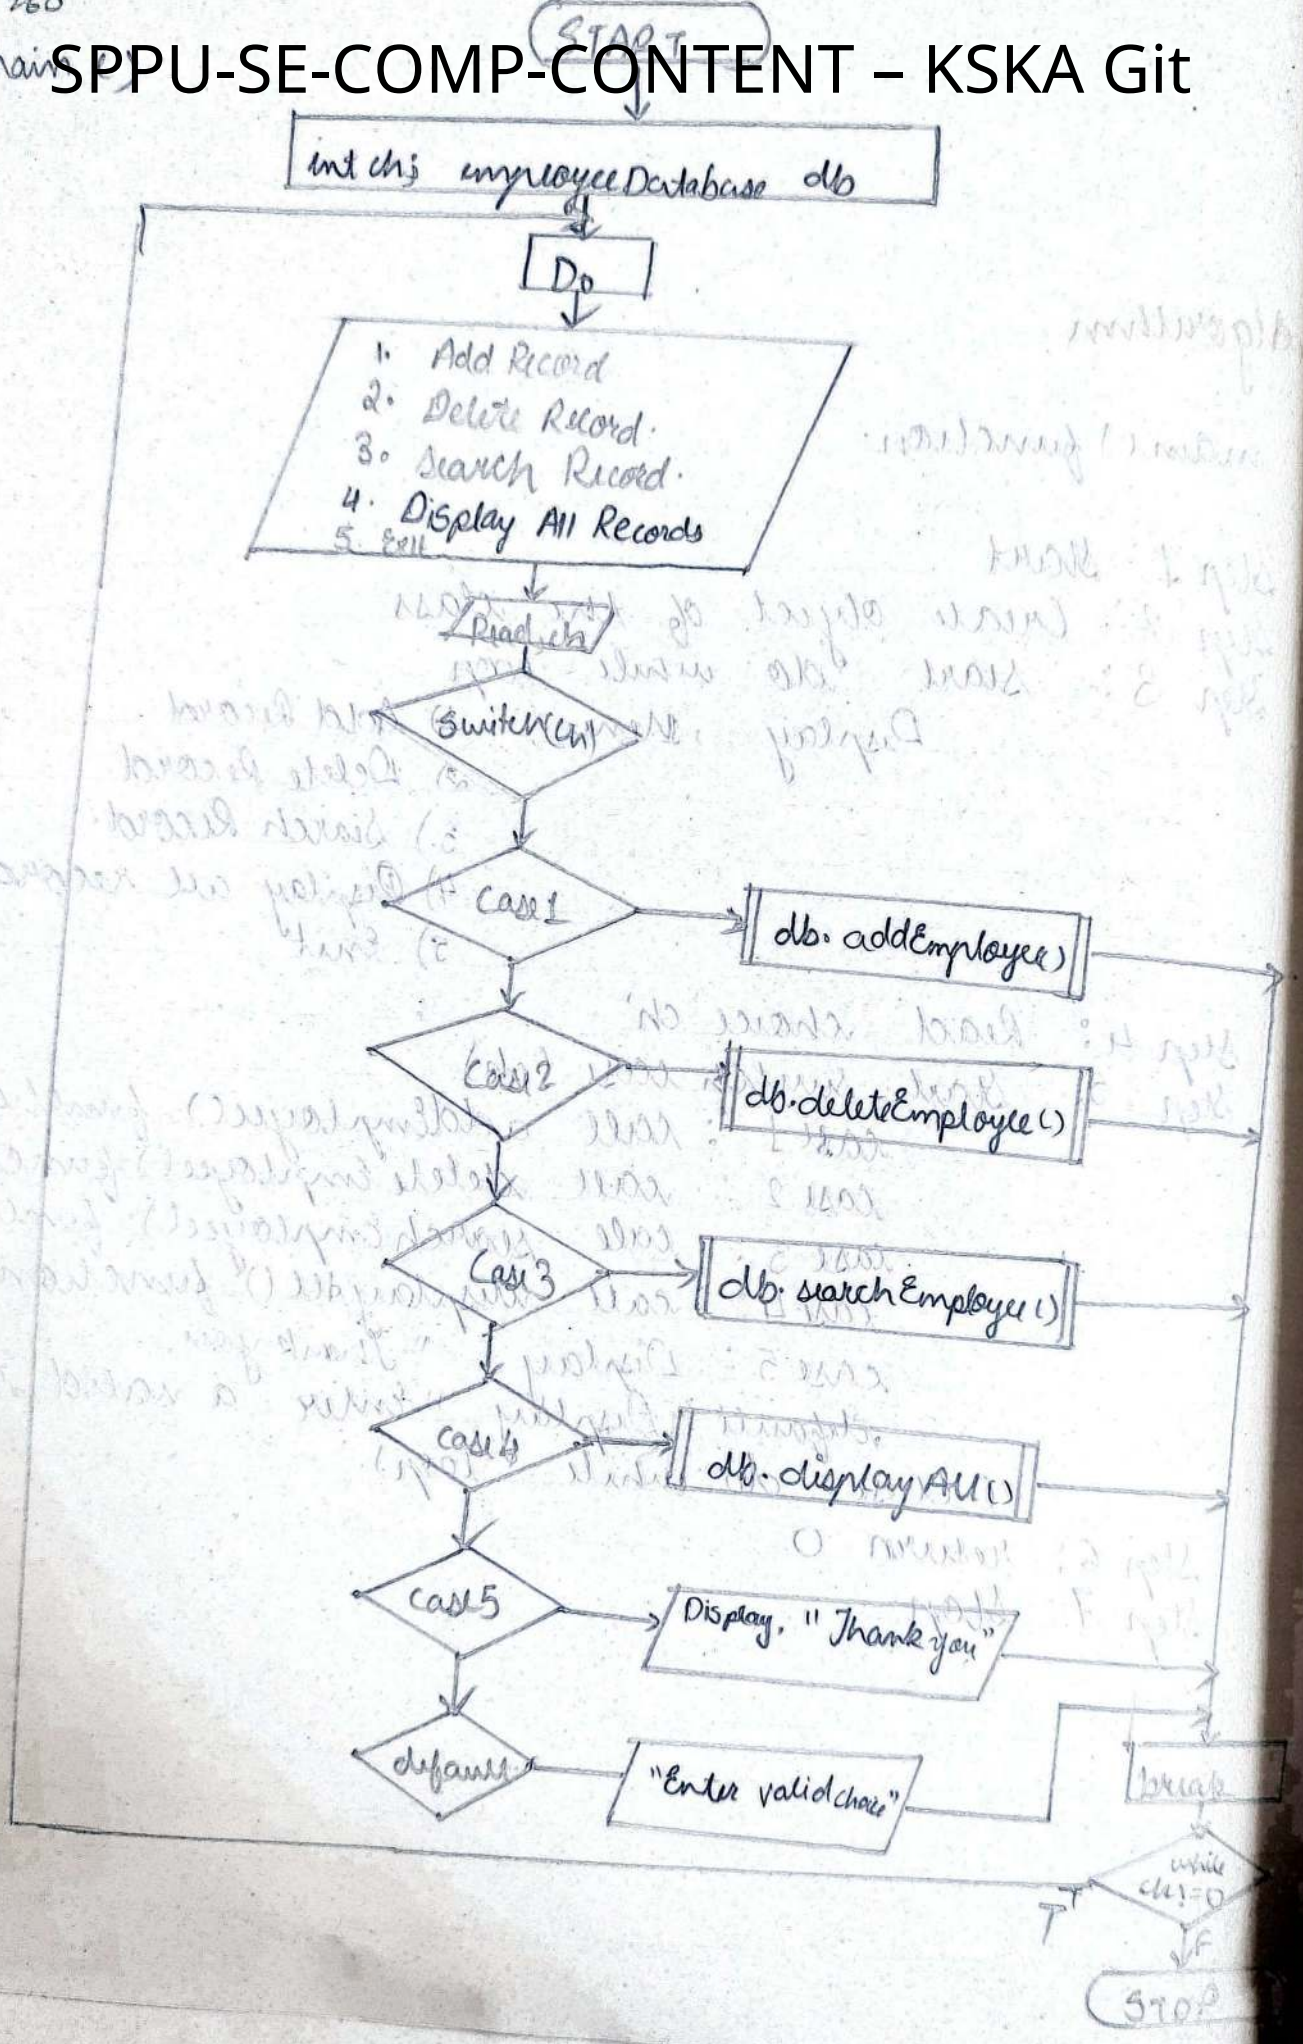 START
SPPU-SE-COMP-CONTENT – KSKA Git
int ch; employeeDatabase db
Do
1. Add Record
2. Delete Record.
3. Search Record.
4. Display All Records
5. Exit
Read ch
Switch(ch)
Case1
db. addEmployee()
Case2
db.deleteEmployee()
Case3
db. searchEmployee()
case4
db. displayAll()
case5
Display. "Thank you"
default
"Enter valid choice"
break
while
ch!=0
T
F
STOP